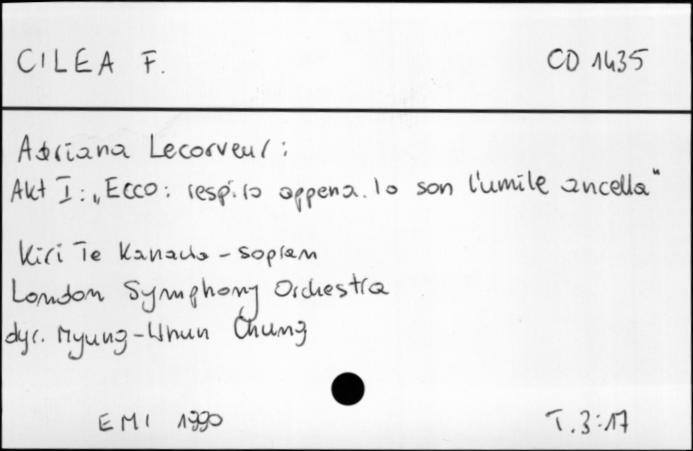 CILEA F. CD 1435
Adriana Lecorveur:
Akt I: „Ecco: respiro appena. Io son l'umile ancella"
Kiri Te Kanawa - sopran
London Symphony Orchestra
dyr. Myung-Whun Chung
EMI 1990 T. 3:17